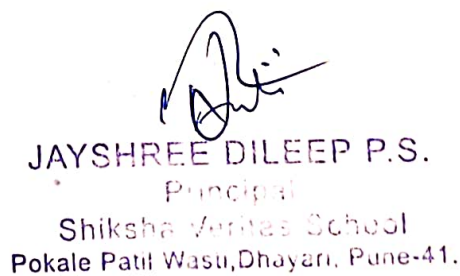 JAYSHREE DILEEP P.S.
Principal
Shiksha Veritas School
Pokale Patil Wasti,Dhayari, Pune-41.